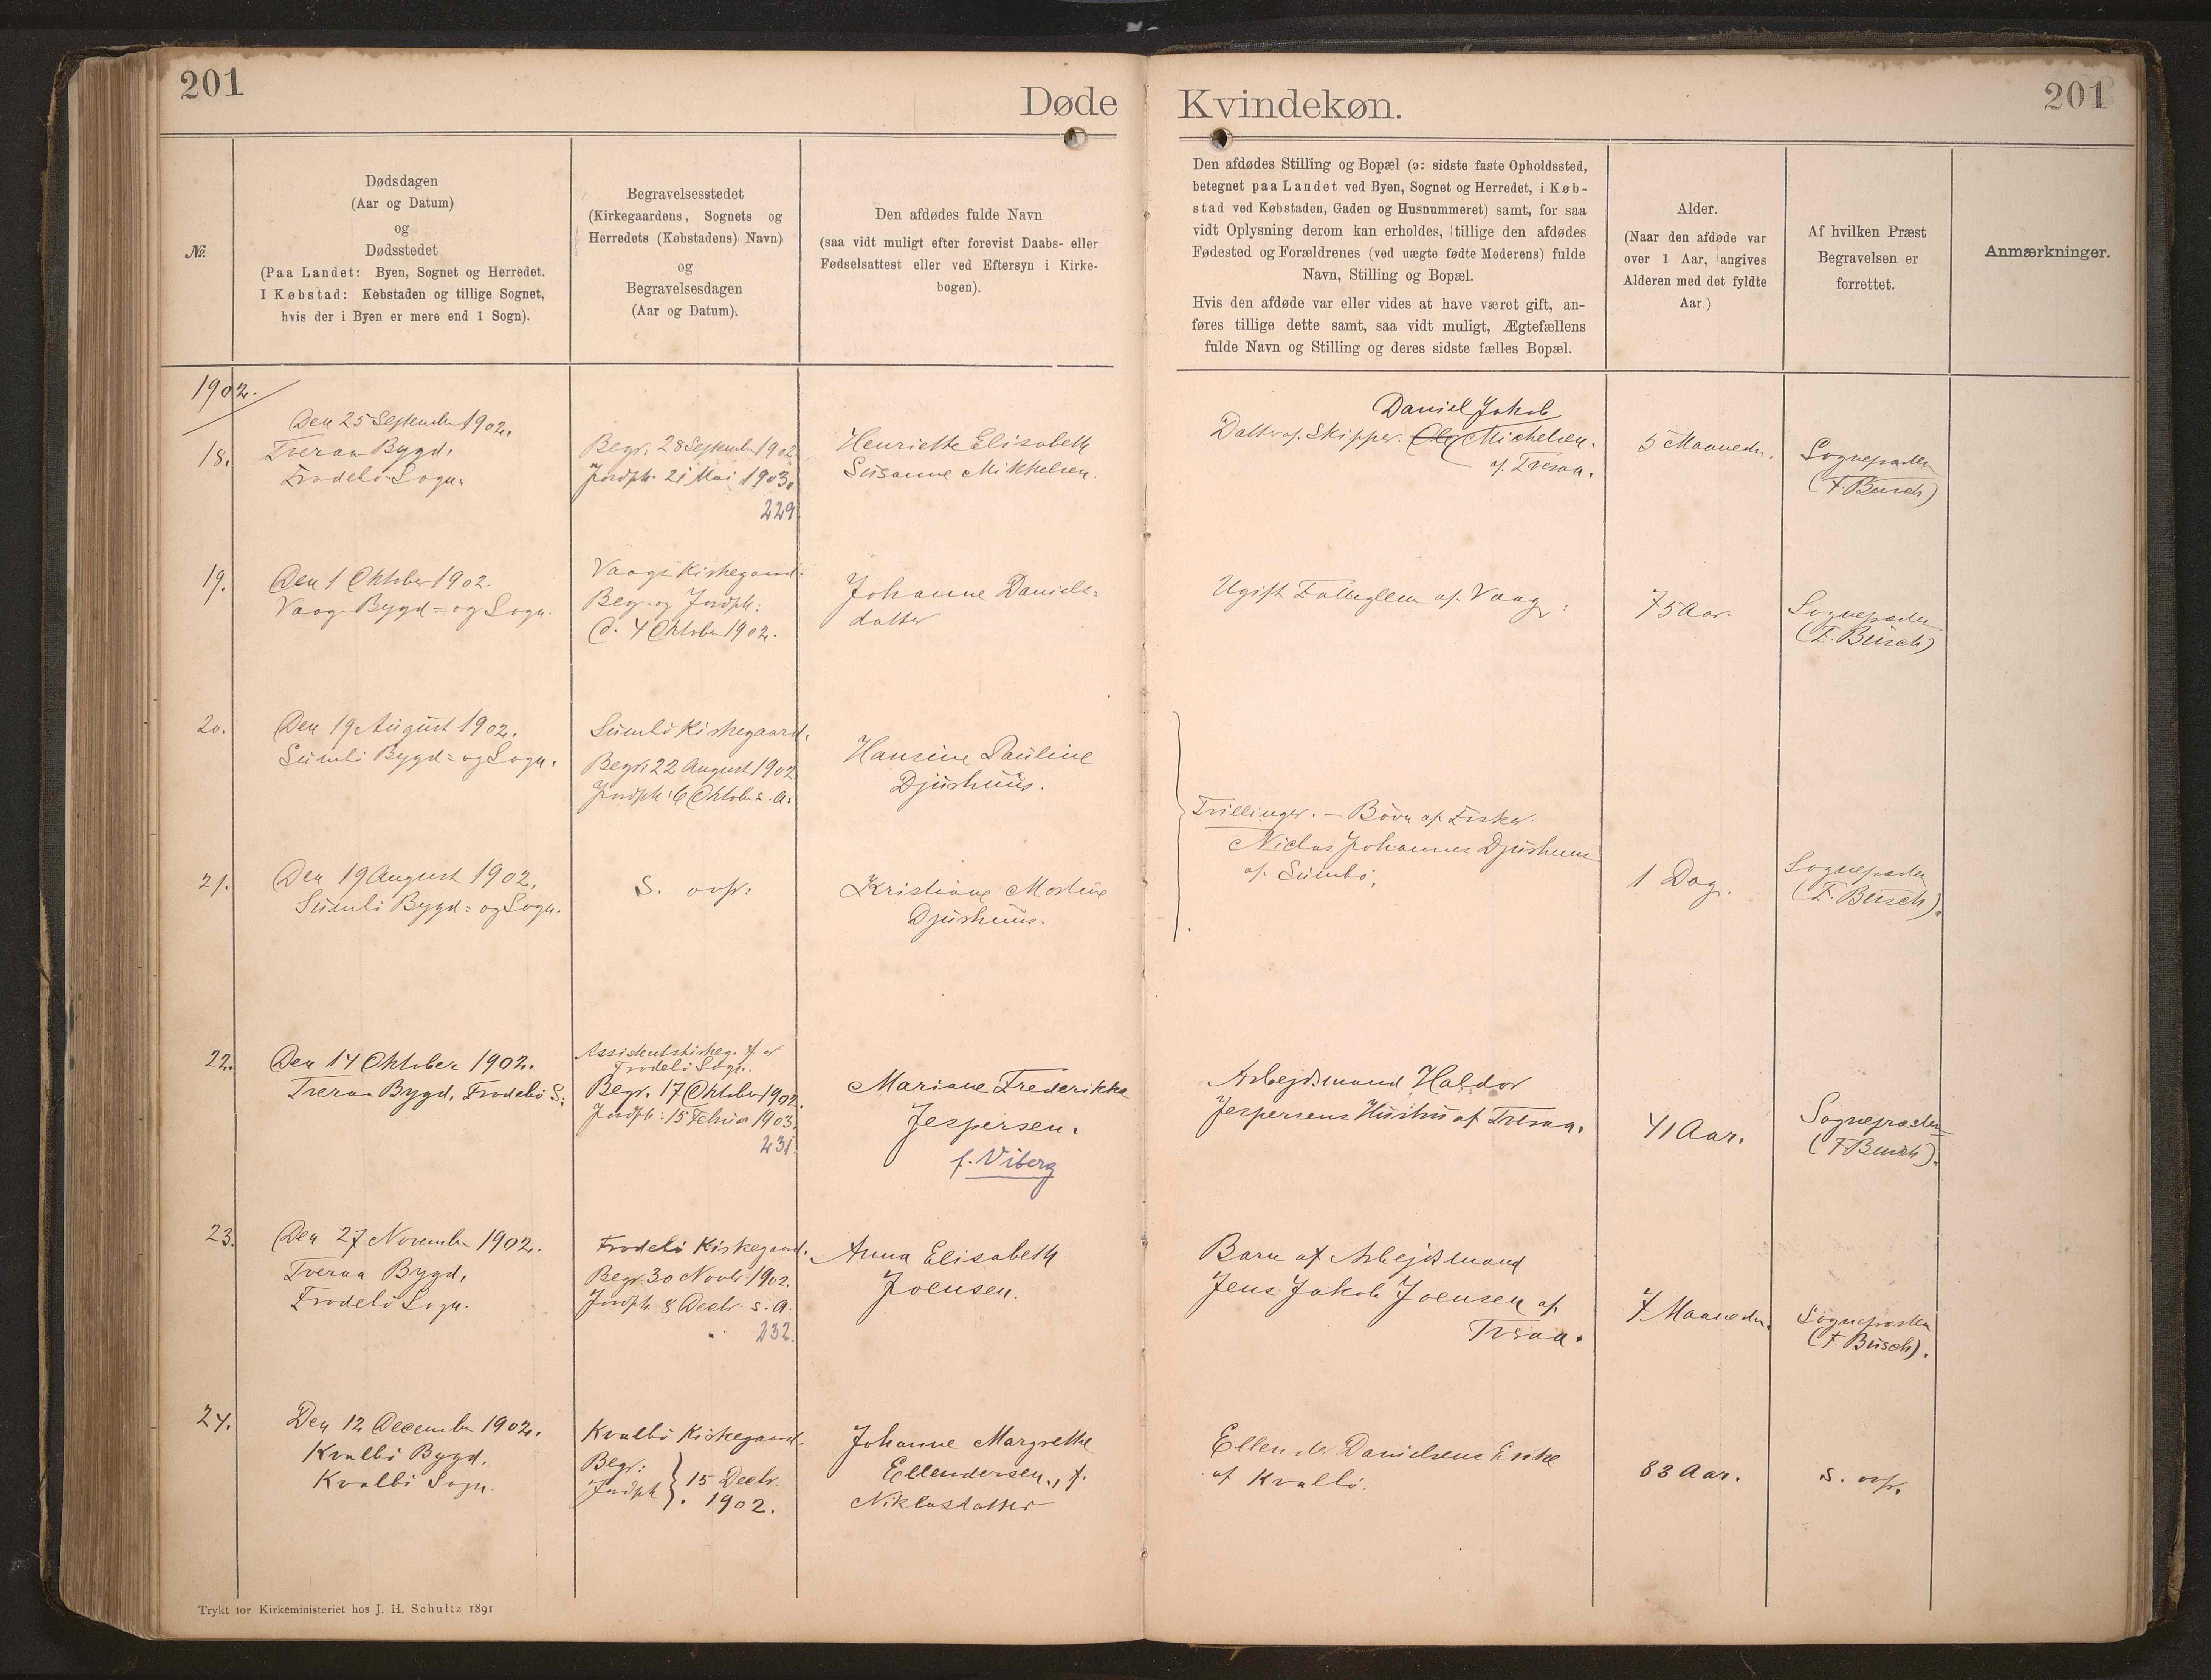 201
Døde
Kvindekøn.
201
№.
Dødsdagen
(Aar og Datum)
og
Dødsstedet
(Paa Landet: Byen, Sognet og Herredet.
I Købstad: Købstaden og tillige Sognet,
hvis der i Byen er mere end 1 Sogn).
Begravelsesstedet
(Kirkegaardens, Sognets og
Herredets (Købstadens) Navn)
og
Begravelsesdagen
(Aar og Datum).
Den afdødes fulde Navn
(saa vidt muligt efter forevist Daabs- eller
Fødselsattest eller ved Eftersyn i Kirke-
bogen).
Den afdødes Stilling og Bopæl (ɔ: sidste faste Opholdssted,
betegnet paa Landet ved Byen, Sognet og Herredet, i Køb-
stad ved Købstaden, Gaden og Husnummeret) samt, for saa
vidt Oplysning derom kan erholdes, tillige den afdødes
Fødested og Forældrenes (ved uægte fødte Moderens) fulde
Navn, Stilling og Bopæl.
Hvis den afdøde var eller vides at have været gift, an-
føres tillige dette samt, saa vidt muligt, Ægtefællens
fulde Navn og Stilling og deres sidste fælles Bopæl.
Alder.
(Naar den afdøde var
over 1 Aar, angives
Alderen med det fyldte
Aar.)
Af hvilken Præst
Begravelsen er
forrettet.
Anmærkninger.
1902.
18.
Den 25 September 1902.
Tveraa Bygd.
Frodebö Sogn.
Begr. 28 September 1902
Jordph. 21 Mai 1903.
229
Henriette Elisabeth
Susanne Mikkelsen.
Daniel Jakob
Datter af Skipper Ole Michelsen.
af Tveraa.
5 Maaneder.
Sognepræsten
(F. Busch)
19.
Den 1 Oktober 1902.
Vaag Bygd= og Sogn.
Vaags Kirkegaard.
Begr. og Jordph:
D. 4 Oktober 1902.
Johanne Daniels=
datter
Ugift Fattiglem af Vaag.
75 Aar.
Sognepræsten
(F. Busch)
20.
Den 19 August 1902.
Sumbö Bygd= og Sogn.
Sumbö Kirkegaard.
Begr: 22 August 1902
Jordph: 6 Oktob. s. A.
Hansine Pauline
Djurhuus.
Trillinger. – Börn af Fisker
Niclas Johannes Djurhuus
af Sumbö.
21.
Den 19 August 1902.
Sumbö Bygd= og Sogn.
S. ovfr:
Kristiane Mortine
Djurhuus.
1 Dag.
Sognepræsten
(F. Busch).
22.
Den 14 Oktober 1902.
Tveraa Bygd, Frodebö S.
Assistentskirkeg. f or
Frodebö Sogn.
Begr. 17 Oktober 1902.
Jordph: 15 Februar 1903.
231.
Mariane Frederikke
Jespersen.
f. Viberg
Arbejdsmand Haldor
Jespersens Hustru af Tveraa.
41 Aar.
Sognepræsten
(F Busch).
23.
Den 27 November 1902.
Tveraa Bygd,
Frodebö Sogn.
Frodebö Kirkegaard.
Begr. 30 Novbr. 1902.
Jordph. 8 Decbr. s. A.
232.
Anna Elisabeth
Joensen.
Barn af Arbejdsmand
Jens Jakob Joensen af
Tveraa.
7 Maaneder.
Sognepræsten
(F. Busch).
24.
Den 12 December 1902.
Kvalbö Bygd.
Kvalbö Sogn.
Kvalbö Kirkegaard.
Begr:
Jordph } 15 Decbr.
1902.
Johanne Margrethe
Ellendersen, f.
Niklasdatter
Ellender Danielsens Enke
af Kvalbö.
83 Aar.
s. ovfr.
Trykt for Kirkeministeriet hos J. H. Schultz 1891